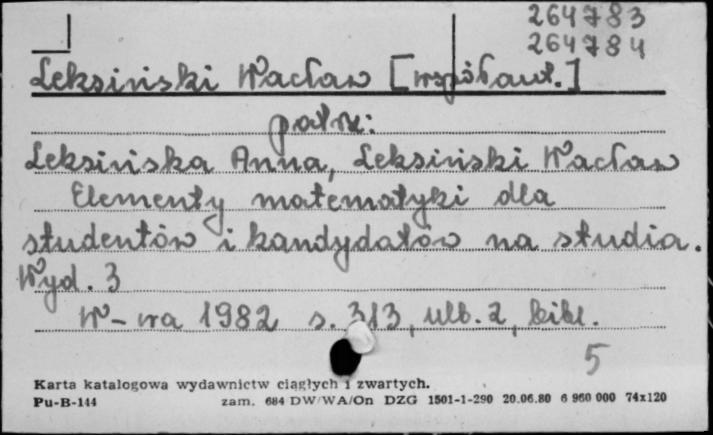 264783
264784
Leksiński Wacław [współaut.]
patrz:
Leksińska Anna, Leksiński Wacław
Elementy matematyki dla
studentów i kandydatów na studia.
Wyd. 3
W-wa 1982 s. 313, nlb. 2, bibl.
5
Karta katalogowa wydawnictw ciągłych i zwartych.
Pu-B-144 zam. 684 DW/WA/On DZG 1501-1-290 20.06.80 6 960 000 74x120